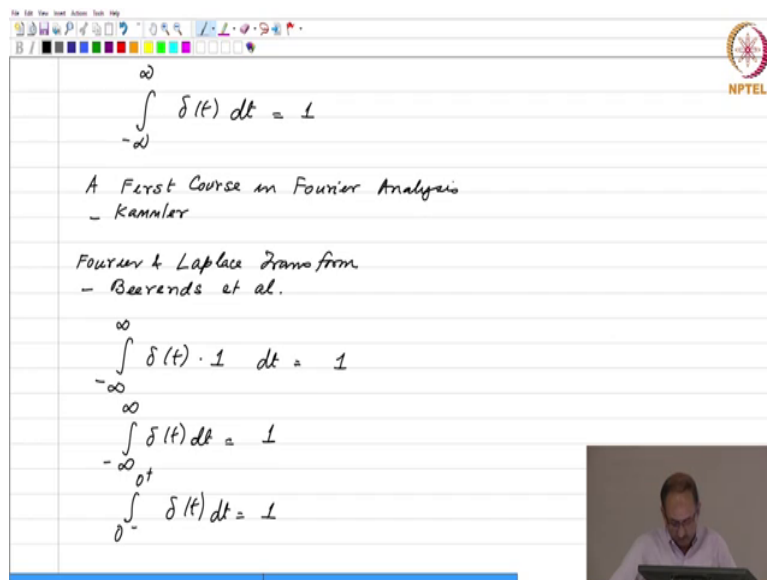 File Edit View Insert Actions Tools Help
B I
NPTEL
∞
∫ δ(t) dt = 1
-∞
A First Course in Fourier Analysis
- Kammler
Fourier & Laplace Transform
- Beerends et al.
∞
∫ δ(t) . 1 dt = 1
-∞
∞
∫ δ(t) dt = 1
-∞
0+
∫ δ(t) dt = 1
0-